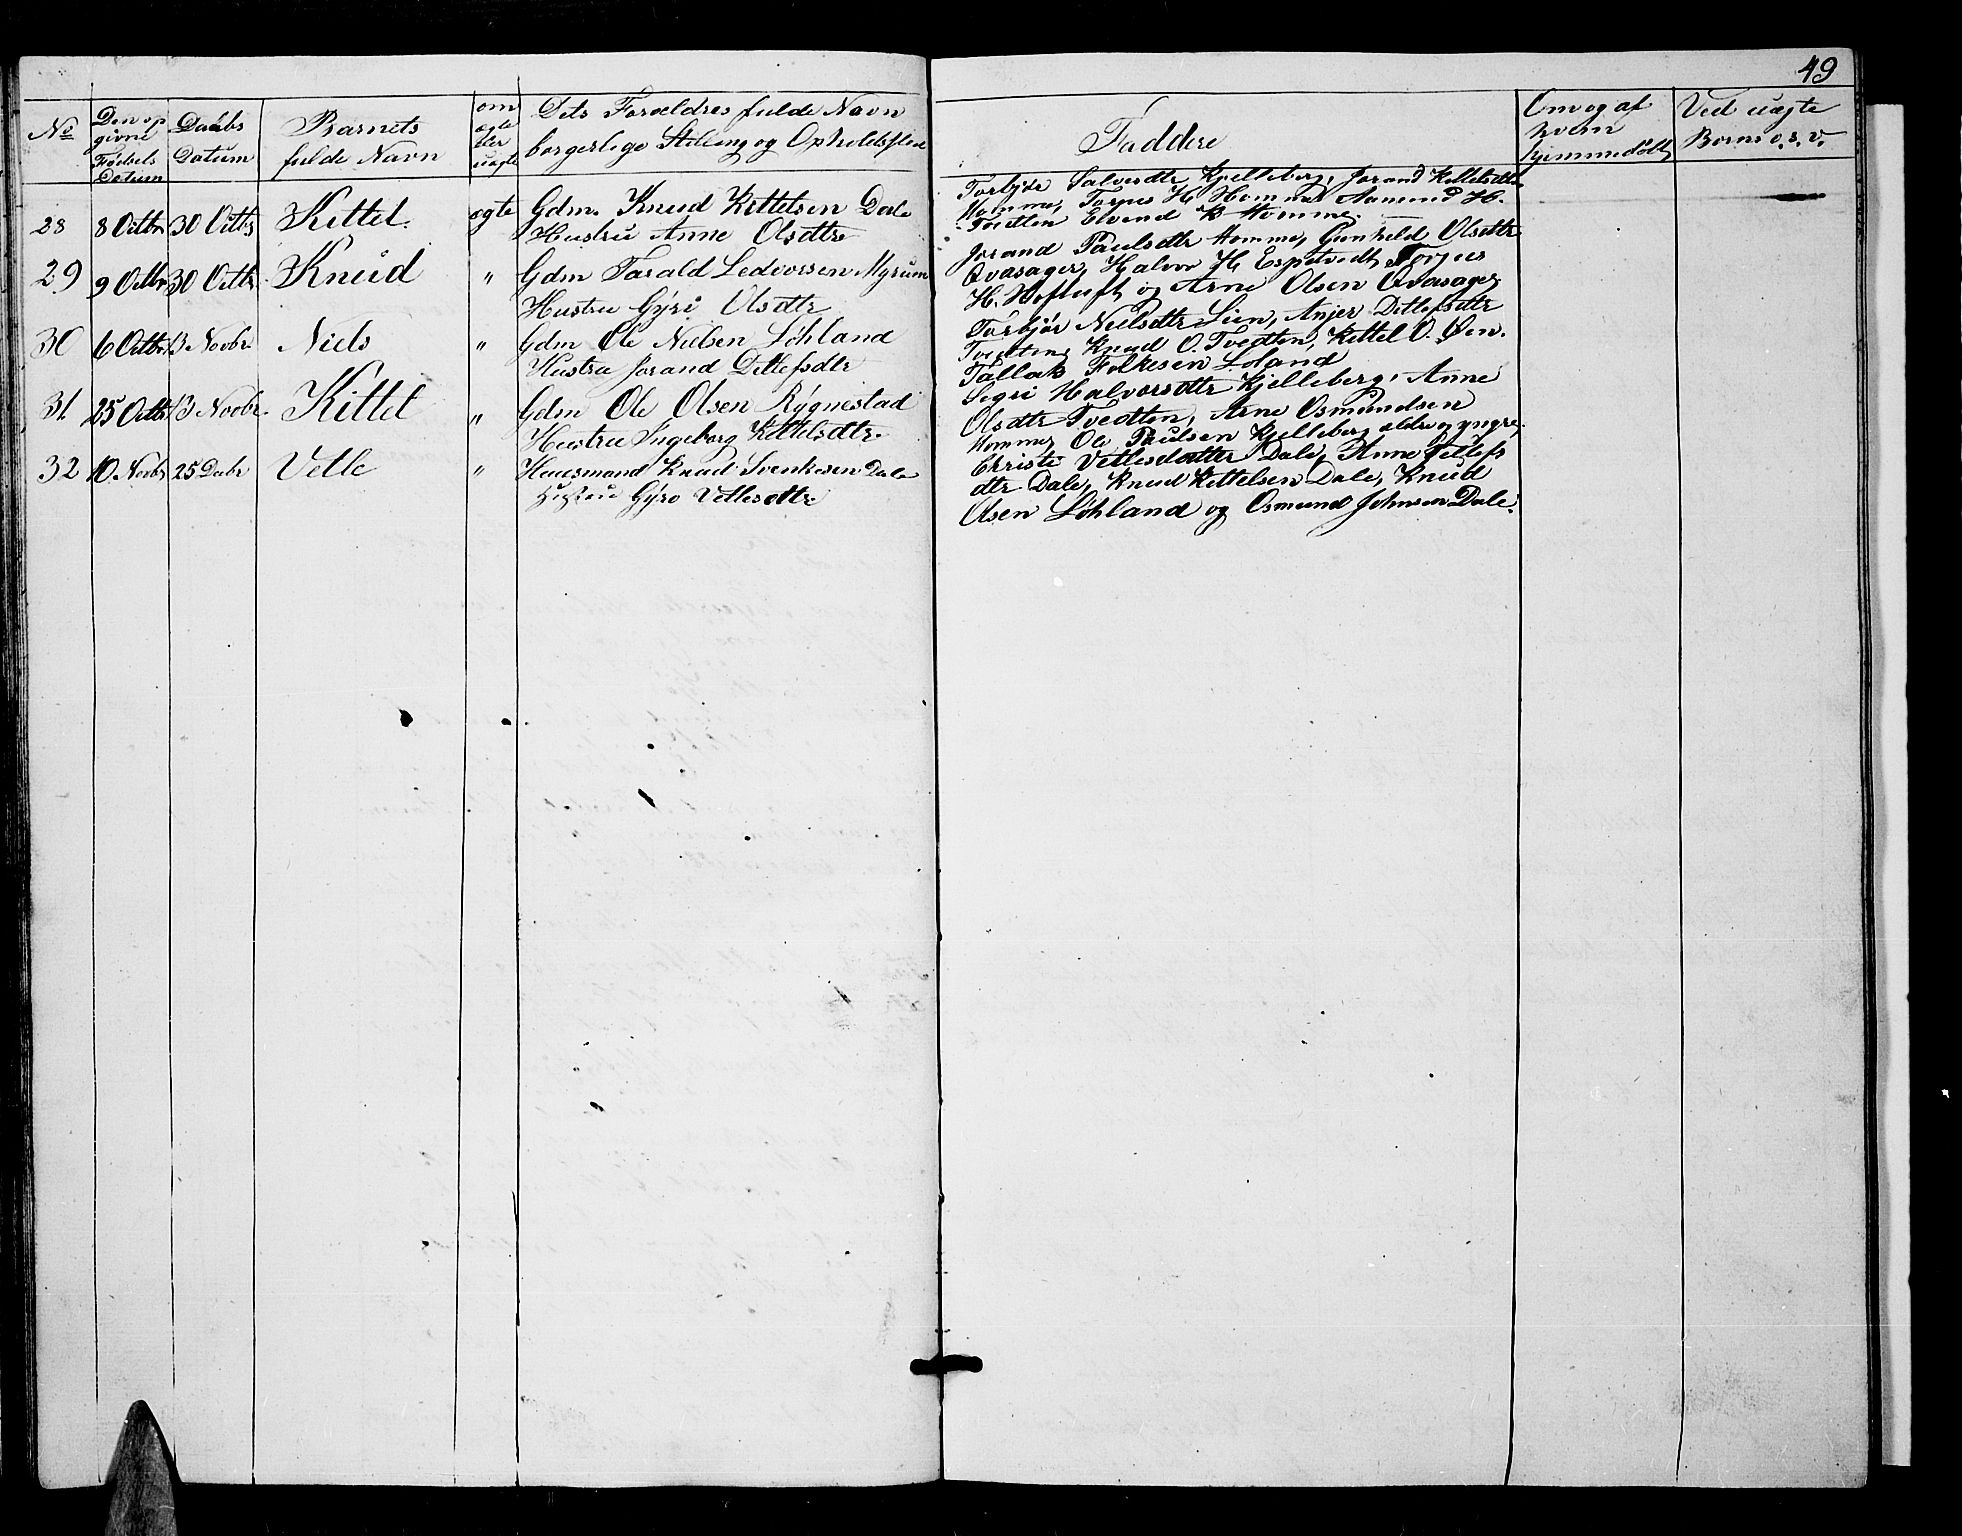 49
No
Den op
givne
Fødsels
Datum
Daabs
Datum
Barnets
fulde Navn
om
ægte
eller
uægte
Dets Forældres fulde Navn
borgerlige Stilling og Opholdssted
Faddere
Om og af
hvem
hjemmedøbt
Ved uægte
Børns o.s.v.
28 8 Octbr 30 Octbr Kittel. ægte Gdm. Knud Kittelsen Dale
Hustru Anne Olsdtr
Torbjør Salvesdtr Kjelleberg, Jorand Kittelsdtr
Homme, Torjus H Homme Aamund H.
Tvedten Eivind K Homme.
29 9 Octbr 30 Octbr Knud " Gdm Tarald Ledvorsen Myrum
Hustru Gýri Olsdtr
Jorand Paulsdtr Homme, Gunhild Olsdtr
Qvasager, Halvor H Espetvedt Torjus
H. og Arne Olsen Qvasager
30 6 Octbr 13 Novbr. Niels " Gdm Ole Nielsen Løhland
Hustru Jorand Ditlefsdtr
Torbjør Nielsdtr Lien, Anjer Ditlefsdtr
Tvedten, Knud O. Tvedten, Kittel O. Øen.
Tallak Folkesen Loland
31. 25 Octbr 13 Novbr. Kittel " Gdm Ole Olsen Rýgnestad
Hustru Ingeborg Kittelsdtr.
Segri Halvorsdtr Kjelleberg, Anne
Olsdtr Tvedten, Arne Osmundsen
Homme, Ole Paulsen Kjelleberg ældre og yngre,
32 10 Novbr 25 Decbr Vetle " Huusmand Knud Svenkesen Dale
Hustru Gýro Vetlesdtr.
Christi Vetlesdatter Dale, Anne Vetlefs
dtr Dale, Knud Kittelsen Dale, Knud
Olsen Løhland og Osmund Johnsen Dale.